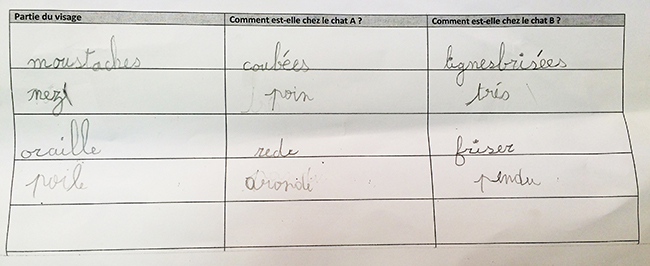 Partie du visage Comment est-elle chez le chat A ? Comment est-elle chez le chat B ?
moustaches coubées lignesbrisées
nez poin trés
oraille rede friser
poile arondé pendu